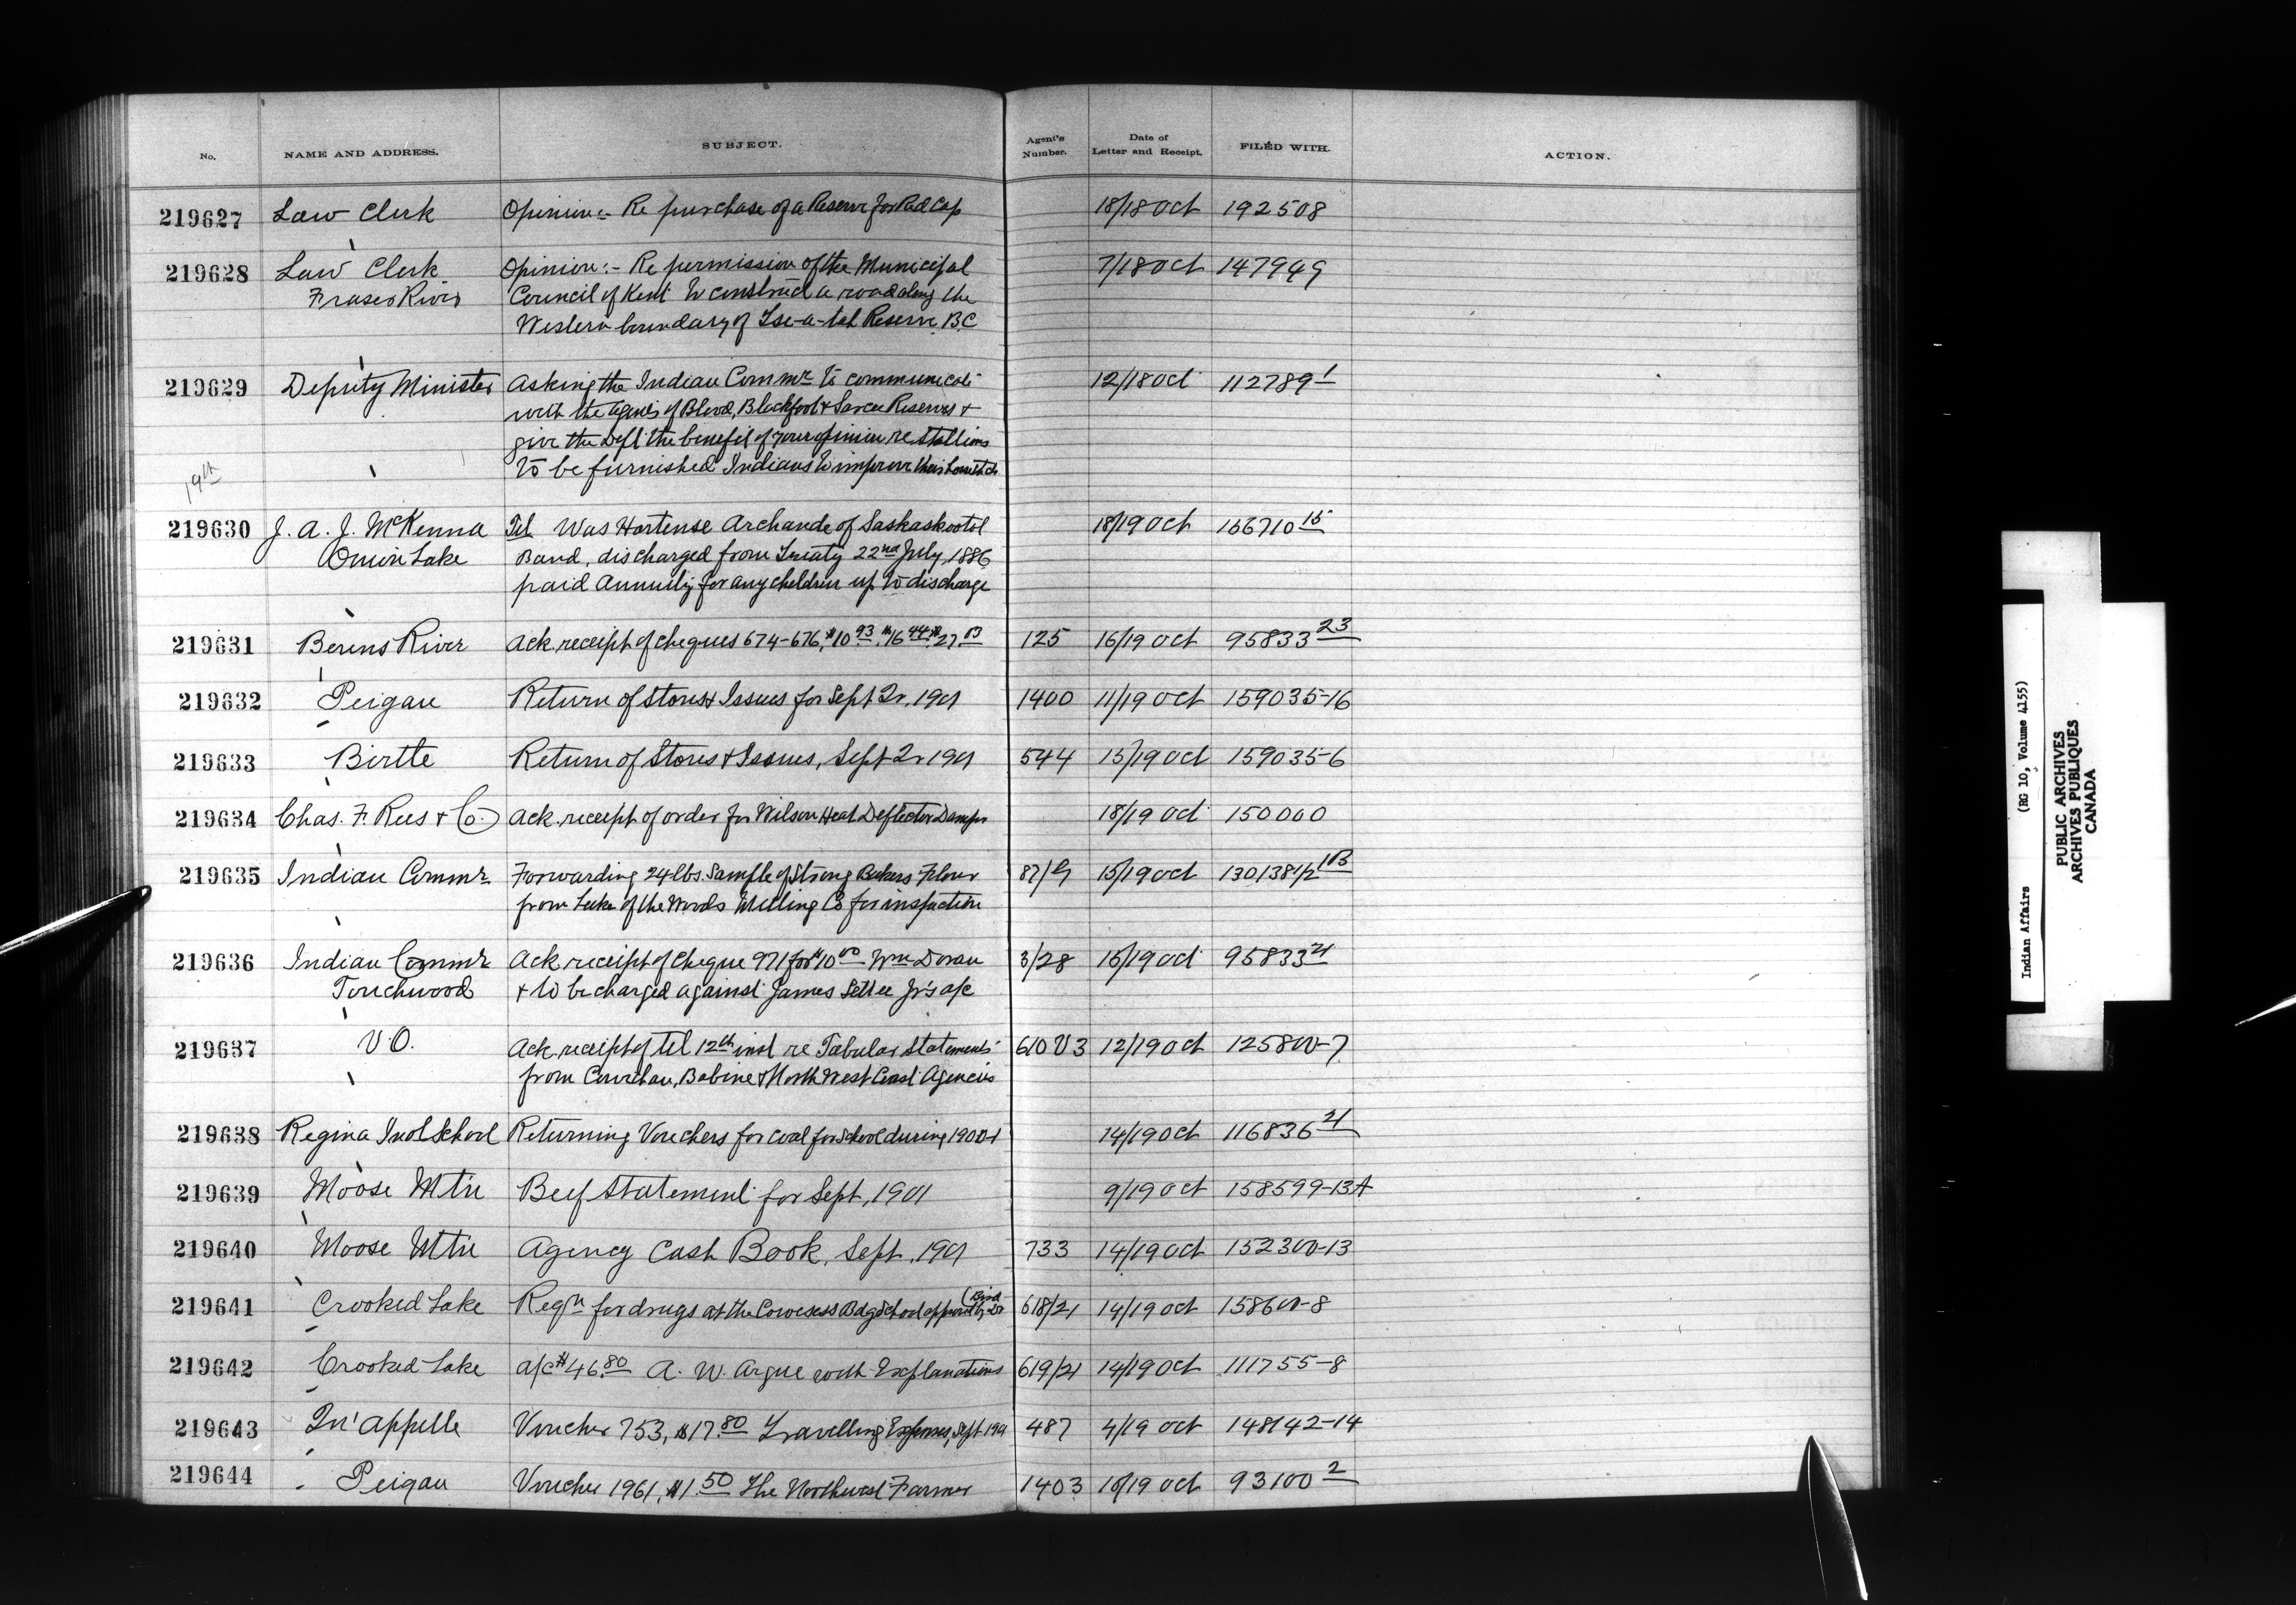 No. NAME AND ADDRESS. SUBJECT. Agent's Number. Date of Letter and Receipt. FILED WITH. ACTION.
219627 Law Clerk Opinion:- Re purchase of a Reserve for Red Cap 18/18 Oct 192508
219628 Law Clerk Opinion:- Re permission of the Municipal 7/18 Oct 147949
Fraser River Council of Kent to construct a road along the
Western boundary of Tse-a-tah Reserve B.C
219629 Deputy Minister Asking the Indian Commr to communicate 12/18 Oct 112789 1
with the agents of Blood, Blackfoot & Sarcee Reserves &
give the Dept the benefit of your opinion re Stallions
19th to be furnished Indians to improve their
219630 J. A. J. McKenna Tel Was Hortense Archande of Saskaskootch 18/19 Oct 166710 15
Onion Lake Band, discharged from Treaty 22nd July, 1886
paid Annuity for any children up to discharge
219631 Berens River Ack. receipt of cheques 674-676, $10.93, $16.44 $27.03 125 16/19 Oct 95833 23
219632 Peigan Return of Stores & Issues for Sept Qr, 1901 1400 11/19 Oct 159035-16
219633 Birtle Return of Stores & Issues, Sept Qr 1901 544 15/19 Oct 159035-6
219634 Chas. F. Rees & Co. Ack. receipt of order for Wilson Heat Deflector Damper 18/19 Oct 150000
219635 Indian Commr Forwarding 24 lbs. Sample of Strong Bakers Flour 87/G 15/19 Oct 130138 1/2 1B
from Lake of the Woods Milling Co for inspection
219636 Indian Commr Ack receipt of Cheque 971 for $10.00 Wm Doran 3/28 15/19 Oct 95833 21
Touchwood & to be charged against James Settee Jr's a/c
219637 V.O. Ack. receipt of tel 12th inst re Tabular Statements 610 V3 12/19 Oct 125800-7
from Cowichan, Babine & North West Coast Agencies
219638 Regina Indl School Returning Vouchers for coal for School during 1900-1 14/19 Oct 116836 21
219639 Moose Mtn Beef Statement for Sept, 1901 9/19 Oct 158599-13A
219640 Moose Mtn Agency Cash Book, Sept, 1901 733 14/19 Oct 152300-13
219641 Crooked Lake Reqn for drugs at the Cowesess Bdg School approved by Dr (Bird 618/21 14/19 Oct 158600-8
219642 Crooked Lake a/c $46.80 A. W. Argue with Explanations 619/21 14/19 Oct 111755-8
219643 Qu'appelle Voucher 753, $17.80 Travelling Expenses, Sept 1901 487 4/19 Oct 148142-14
219644 Peigan Voucher 1961, $1.50 The Northwest Farmer 1403 10/19 Oct 93100 2
Indian Affairs (RG 10, Volume 4155)
PUBLIC ARCHIVES
ARCHIVES PUBLIQUES
CANADA